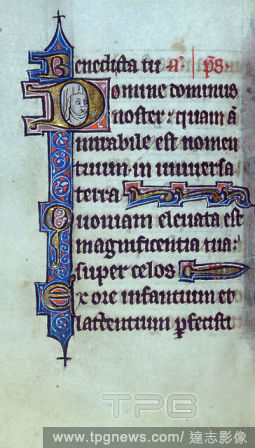 Benedicta tu a. ps.
Domine dominus
noster: quam ā
mirabile est nomen
tuum in universa
terra
Quoniam elevata est
magnificentia tua:
super celos
Ex ore infantium et
lactentium pfecisti
TPG
www.tpgnews.com/達志影像